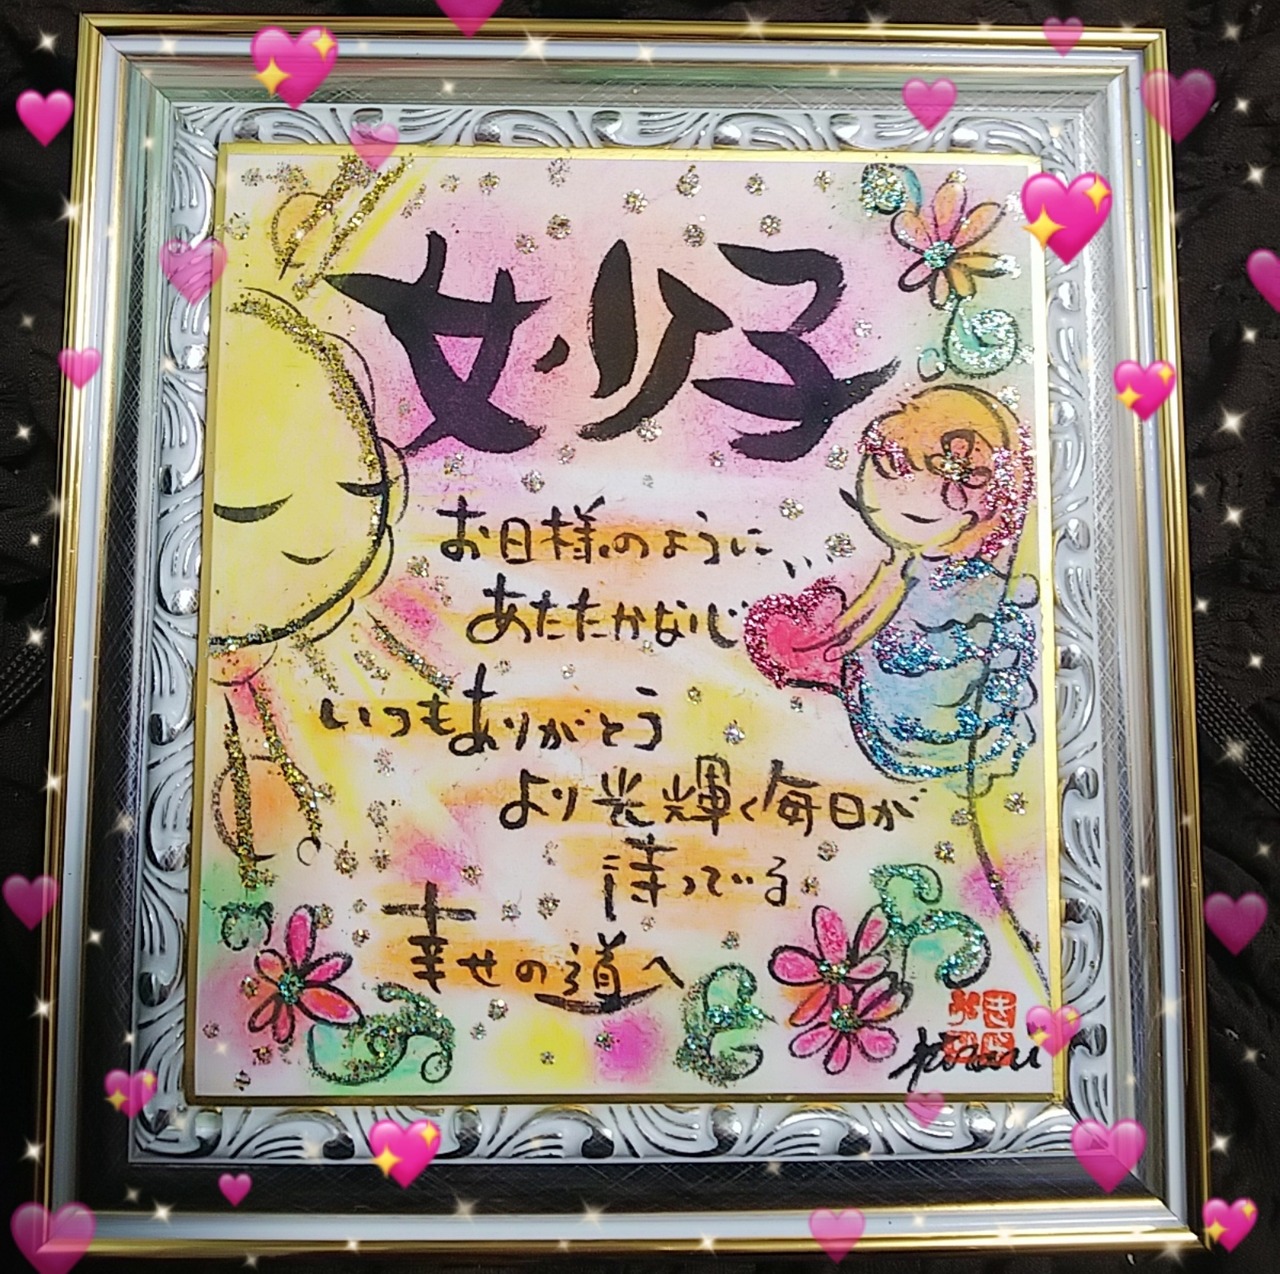 妙子
お日様のように‥
あたたかな心
いつもありがとう
より光輝く毎日が
待っている
幸せの道へ